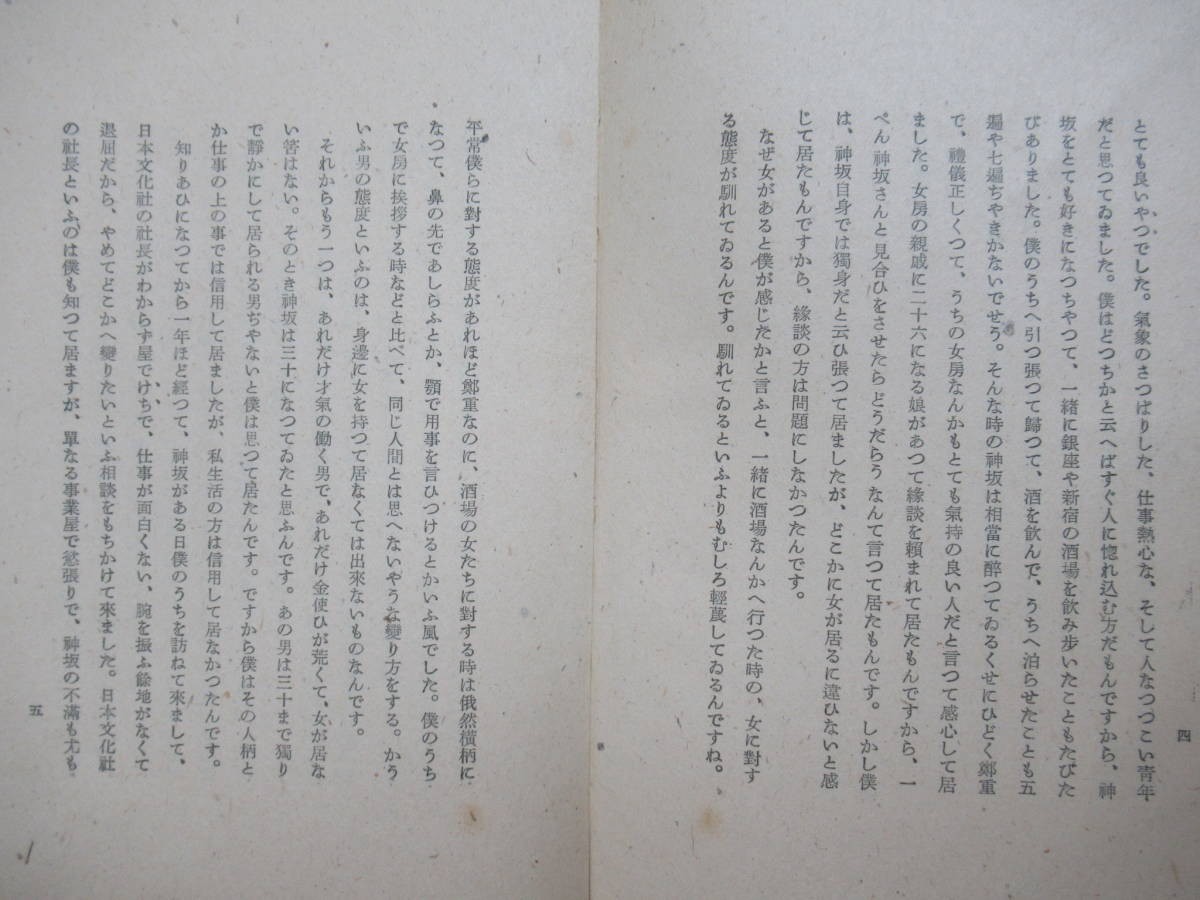 とても良いやつでした。氣象のさつぱりした、仕事熱心な、そして人なつつこい青年
だと思つてゐました。僕はどつちかと云へばすぐ人に惚れ込む方だもんですから、神
坂をとても好きになつちやつて、一緒に銀座や新宿の酒場を飲み歩いたこともたびた
びありました。僕のうちへ引つ張つて歸つて、酒を飲んで、うちへ泊らせたことも五
遍や七遍ぢやきかないでせう。そんな時の神坂は相當に醉つてゐるくせにひどく鄭重
で、禮儀正しくつて、うちの女房なんかもとても氣持の良い人だと言つて感心して居
ました。女房の親戚に二十六になる娘があつて緣談を賴まれて居たもんですから、一
ぺん神坂さんと見合ひをさせたらどうだらうなんて言つて居たもんです。しかし僕
は、神坂自身では獨身だと云ひ張つて居ましたが、どこかに女が居るに違ひないと感
じて居たもんですから、緣談の方は問題にしなかつたんです。
なぜ女があると僕が感じたかと言ふと、一緒に酒場なんかへ行つた時の、女に對す
る態度が馴れてゐるんです。馴れてゐるといふよりもむしろ輕蔑してゐるんですね。
四
平常僕らに對する態度があれほど鄭重なのに、酒場の女たちに對する時は俄然橫柄に
なつて、鼻の先であしらふとか、顎で用事を言ひつけるとかいふ風でした。僕のうち
で女房に挨拶する時などと比べて、同じ人間とは思へないやうな變り方をする。かう
いふ男の態度といふのは、身邊に女を持つて居なくては出來ないものなんです。
それからもう一つは、あれだけ才氣の働く男で、あれだけ金使ひが荒くて、女が居な
い筈はない。そのとき神坂は三十になつてゐたと思ふんです。あの男は三十まで獨り
で靜かにして居られる男ぢやないと僕は思つて居たんです。ですから僕はその人柄と
か仕事の上の事では信用して居ましたが、私生活の方は信用して居なかつたんです。
知りあひになつてから一年ほど經つて、神坂がある日僕のうちを訪ねて來まして、
日本文化社の社長がわからず屋でけちで、仕事が面白くない、腕を振ふ餘地がなくて
退屈だから、やめてどこかへ變りたいといふ相談をもちかけて來ました。日本文化社
の社長といふのは僕も知つて居ますが、單なる事業屋で慾張りで、神坂の不滿も尤も
五